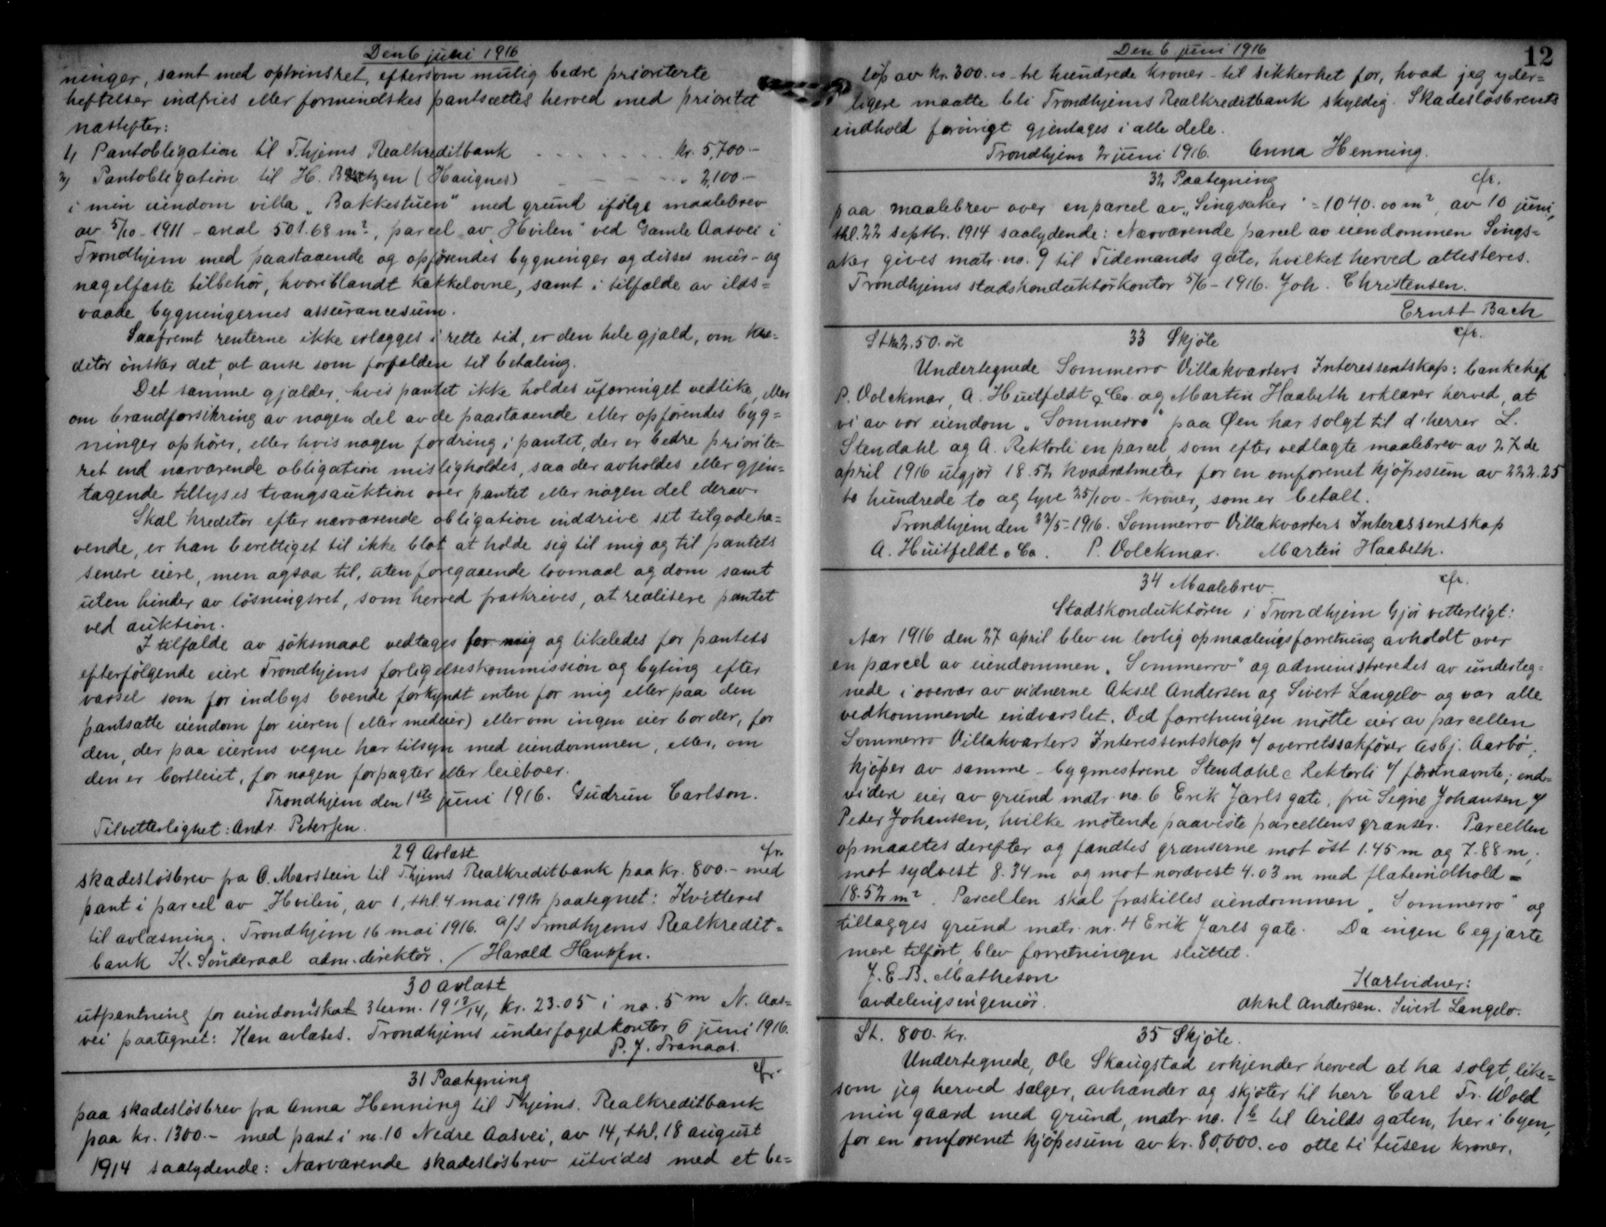 Den 6 juni 1916
ninger, samt med optrinsret, eftersom mulig bedre prioriterte
heftelser indfries eller formindskes pantsættes herved med prioritet
næstefter:
1) Pantobligation til T.hjems Realkreditbank . . . . . . . kr. 5,700 –
2) Pantobligation til H. (Haugnes) – – – – – " 2,100 –
i min eiendom villa „Bakkestuen" med grund ifölge maalebrev
av 5/10 – 1911 – areal 501.68 m², parcel av „Hvilen" ved Gamle Aasvei i
Trondhjem med paastaaende og opförendes bygninger og disses mur- og
nagelfaste tilbehör, hvoriblandt kakkelovne, samt i tilfælde av ilds=
vaade bygningernes assurancesum.
Saafremt renterne ikke erlægges i rette tid, er den hele gjæld, om kre=
ditor önsker det, at anse som forfalden til betaling.
Det samme gjælder, hvis pantet ikke holdes uforringet vedlike, eller
om brandforsikring av nogen del av de paastaaende eller opförendes byg=
ninger ophörer, eller hvis nogen fordring i pantet, der er bedre priorite=
ret end nærværende obligation misligholdes, saa der avholdes eller gjen=
tagende tillyses tvangsauktion over pantet eller nogen del derav.
Skal kreditor efter nærværende obligation inddrive sit tilgodeha=
vende, er han berettiget til ikke blot at holde sig til mig og til pantets
senere eiere, men ogsaa til, uten foregaaende lovmaal og dom samt
uten hinder av lösningsret, som herved fraskrives, at realisere pantet
ved auktion.
I tilfælde av söksmaal vedtages for mig og likeledes for pantets
efterfölgende eiere Trondhjems forligelseskommission og byting efter
varsel som for indbys boende forkyndt enten for mig eller paa den
pantsatte eiendom for eieren (eller medeier) eller om ingen eier bor der, for
den, der paa eierens vegne har tilsyn med eiendommen, eller, om
den er bortleiet, for nogen forpagter eller leieboer.
Trondhjem den 1ste juni 1916. Gudrun Carlson.
Til vitterlighet: Andr. Petersen.
29 Avlæst cfr.
skadeslösbrev fra O. Marstein til T.hjems Realkreditbank paa kr. 800.– med
pant i parcel av „Hvilen", av 1, thl. 4 mai 1912 paategnet: Kvitteres
til avlæsning. Trondhjem 16 mai 1916. A/S Trondhjems Realkredit=
bank K. Sönderaal adm. direktör. / Harald Hansen.
30 Avlæst
utpantning for eiendomsskat 3 term. 1913/14, kr. 23.05 i no. 5 m N. Aas=
vei paategnet: Kan avlæses. Trondhjems underfogedkontor 6 juni 1916.
P. J. Tranaas.
31 Paategning cfr.
paa skadeslösbrev fra Anna Henning til T.hjems. Realkreditbank
paa kr. 1300.– med pant i no. 10 Nedre Aasvei, av 14, thl. 18 august
1914 saalydende: Nærværende skadeslösbrev utvides med et be=
Den 6 juni 1916 12
löp av kr. 300.00 – tre hundrede kroner – til sikkerhet for, hvad jeg yder=
ligere maatte bli Trondhjems Realkreditbank skyldig. Skadeslösbrevets
indhold forövrigt gjentages i alle dele.
Trondhjem 2 juni 1916. Anna Henning.
32 Paategning cfr.
paa maalebrev over en parcel av „Singsaker" = 1040.00 m², av 10 juni,
thl. 22 septbr. 1914 saalydende: Nærværende parcel av eiendommen Sings=
aker gives matr. no. 9 til Tidemands gate, hvilket herved attesteres.
Trondhjems stadskonduktörkontor 5/6 – 1916. Joh. Christensen.
Ernst Bach
St. kr. 2.50 öre 33 Skjöte cfr.
Undertegnede Sommerro Villakvarters Interessentskap: bankchef
P. Volckmar, A. Huitfeldt & Co. og Martin Haabeth erklærer herved, at
vi av vor eiendom „Sommerro" paa Øen har solgt til d'herrer L.
Stendahl og A. Rektorli en parcel, som efter vedlagte maalebrev av 27de
april 1916 utgjör 18.52 kvadratmeter for en omforenet kjöpesum av 222.25
to hundrede to og tyve 25/100 – kroner, som er betalt.
Trondhjem den 22/5 – 1916. Sommerro Villakvarters Interessentskap
A. Huitfeldt & Co. P. Volckmar. Martin Haabeth.
34 Maalebrev. cfr.
Stadskonduktören i Trondhjem Gjör vitterligt:
Aar 1916 den 27 april blev en lovlig opmaalingsforretning avholdt over
en parcel av eiendommen „Sommerro" og administreredes av underteg=
nede i overvær av vidnerne Aksel Andersen og Sivert Langelo og var alle
vedkommende indvarslet. Ved forretningen mötte eier av parcellen
Sommerro Villakvarters Interessentskap v/ overretssakförer Asbj. Aasbö,
kjöper av samme – bygmestrene Stendahl & Rektorli v/ förstnævnte; end=
videre eier av grund matr. no. 6 Erik Jarls gate, fru Signe Johansen v/
Peder Johansen, hvilke mötende paaviste parcellens grænser. Parcellen
opmaaltes derefter og fandtes grænserne mot öst 1.45 m og 7.88 m,
mot sydvest 8.34 m og mot nordvest 4.03 m med flateindhold =
18.52 m². Parcellen skal fraskilles eiendommen „Sommerro" og
tillægges grund matr. nr. 4 Erik Jarls gate. Da ingen begjærte
mere tilfört, blev forretningen sluttet.
J. E. B. Matheson Kartvidner:
avdelingsingeniör. Aksel Andersen. Sivert Langelo.
St. 800. kr. 35 Skjöte.
Undertegnede, Ole Skaugstad erkjender herved at ha solgt, like=
som jeg herved sælger, avhænder og skjöter til herr Carl Fr. Wold
min gaard med grund, matr. no. 1 b til Arilds gaten, her i byen,
for en omforenet kjöpesum av kr. 80,000.00 otte ti tusen kroner.